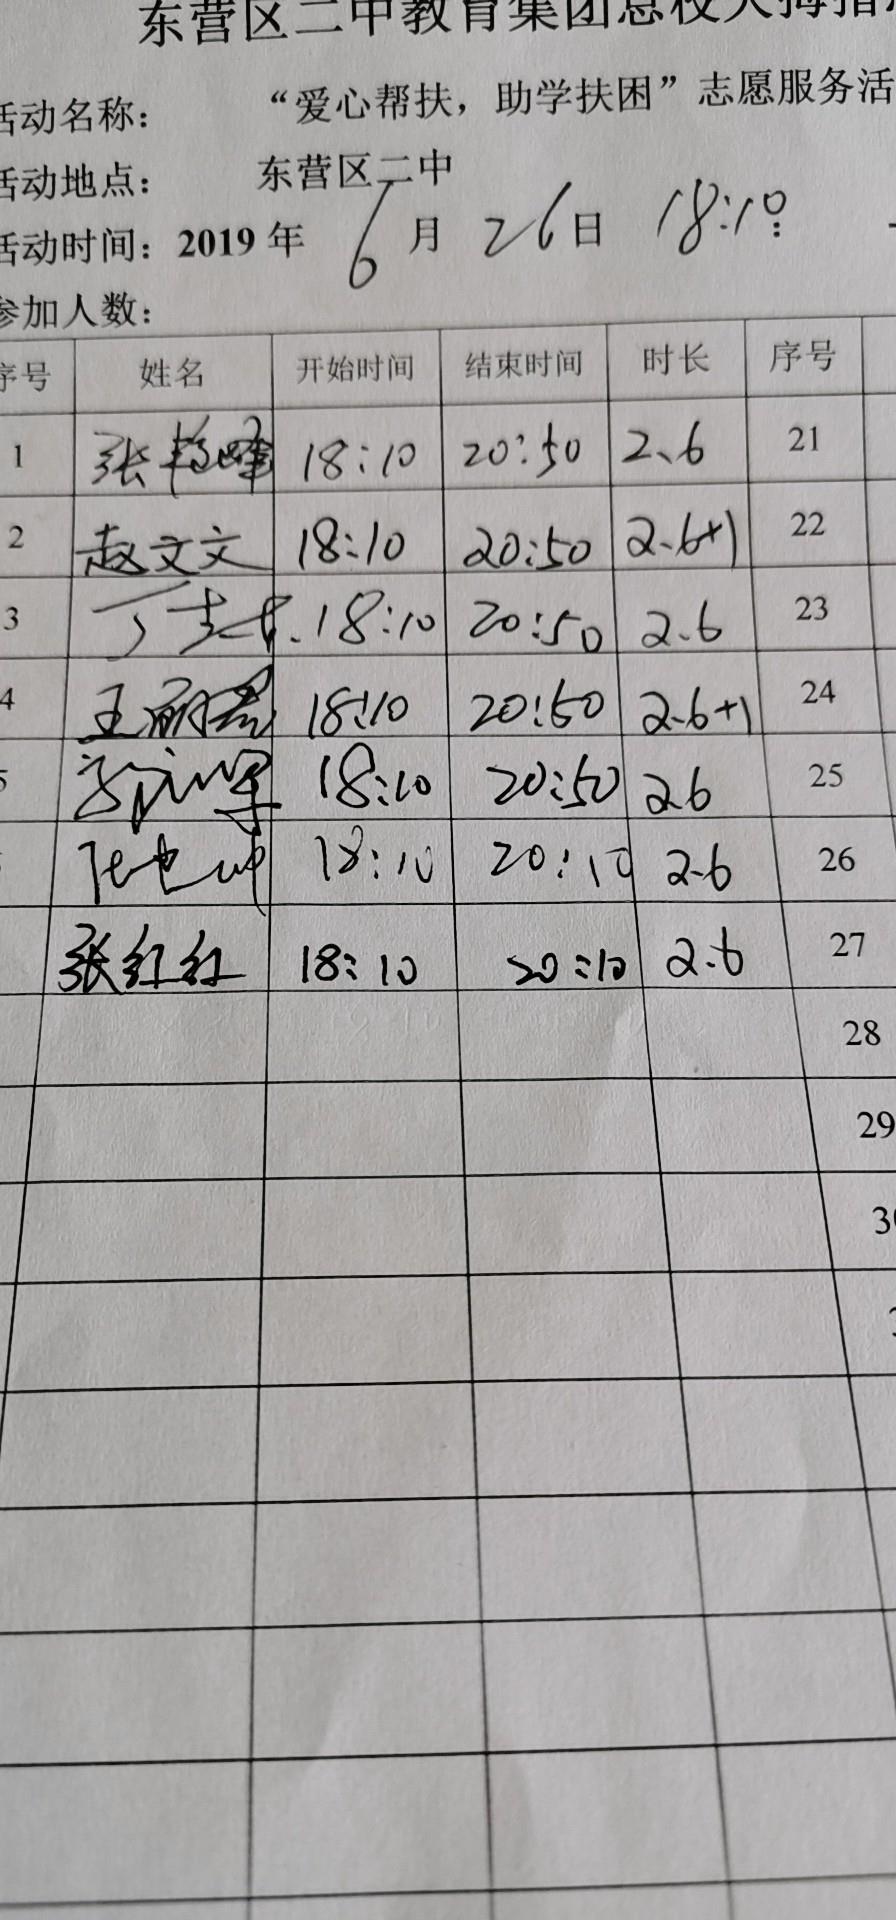 东营区二中教育集团总校大拇指
活动名称： “爱心帮扶，助学扶困”志愿服务活
活动地点： 东营区二中
活动时间：2019 年 6 月 26 日 18:10:
参加人数：
序号 姓名 开始时间 结束时间 时长 序号
1 张艳峰 18:10 20:50 2.6 21
2 赵文文 18:10 20:50 2.6+1 22
3 丁 18:10 20:50 2.6 23
4 王丽 18:10 20:50 2.6+1 24
5 18:10 20:50 2.6 25
18:10 20:10 2.6 26
张红红 18:10 20:10 2.6 27
28
29
30